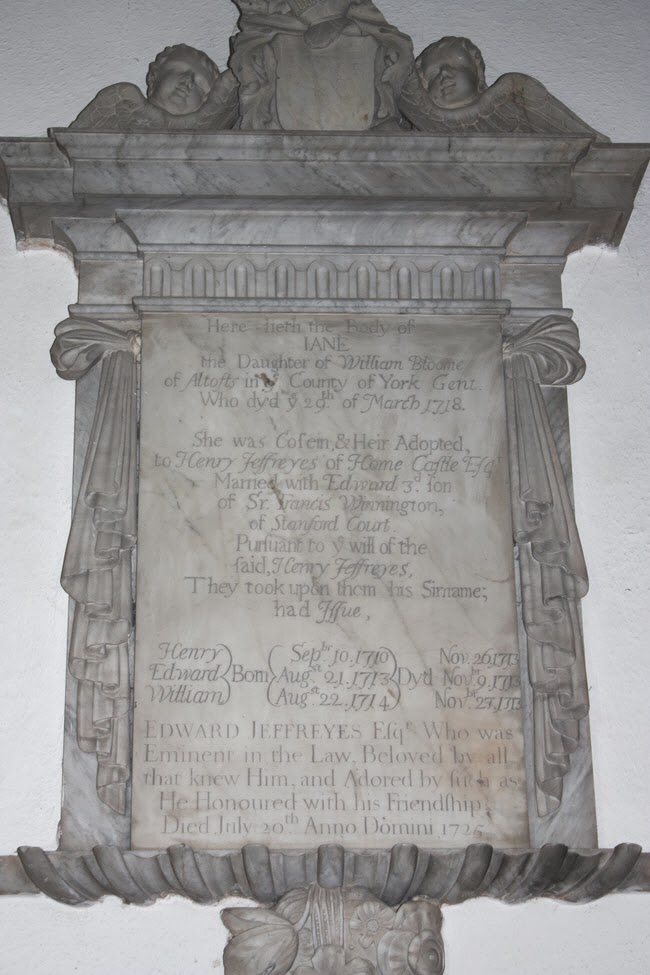 Here lieth the Body of
IANE
the Daughter of William Bloome
of Altofts in yͤ County of York Gent.
Who dyd yͤ 29ᵗʰ of March 1718.
She was Coſein, & Heir Adopted,
to Henry Jeffreyes of Home Caſtle Eſqʳ
Married with Edward 3ᵈ ſon
of Sʳ. Francis Winnington,
of Stanford Court.
Purſuant to yͤ will of the
ſaid, Henry Jeffreyes,
They took upon them his Sirname;
had Iſſue,
Henry Born Sepᵇʳ 10. 1710 Dyd Nov. 26. 1713
Edward Augˢᵗ 21. 1713 Novᵇʳ 9. 1713
William Augˢᵗ 22. 1714 Novᵇʳ
EDWARD JEFFREYES Eſqʳ Who was
Eminent in the Law, Beloved by all
that knew Him, and Adored by ſuch as
He Honoured with his Friendſhip.
Died July 20ᵗʰ Anno Domini, 1726